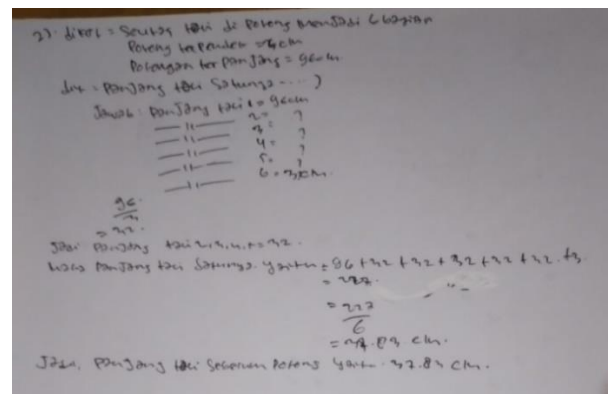 2) diket = Seutas tali di potong menjadi 6 bagian
Potong terpendek = 3cm
Potongan terpanjang = 96cm.
dit = panjang tali semunya ... ?
Jawab : panjang tali 1 = 96cm
— 11 — 2 = ?
— 11 — 3 = ?
— 11 — 4 = ?
— 11 — 5 = ?
— 11 — 6 = 3 cm.
96
3
= 32.
Jadi panjang tali 2, 3, 4, 5 = 32.
maka panjang tali semunya yaitu = 96 + 32 + 32 + 32 + 32 + 3
= 227
= 227
6
= 37.83 cm.
Jadi, panjang tali sebelum potong yaitu 37.83 cm.